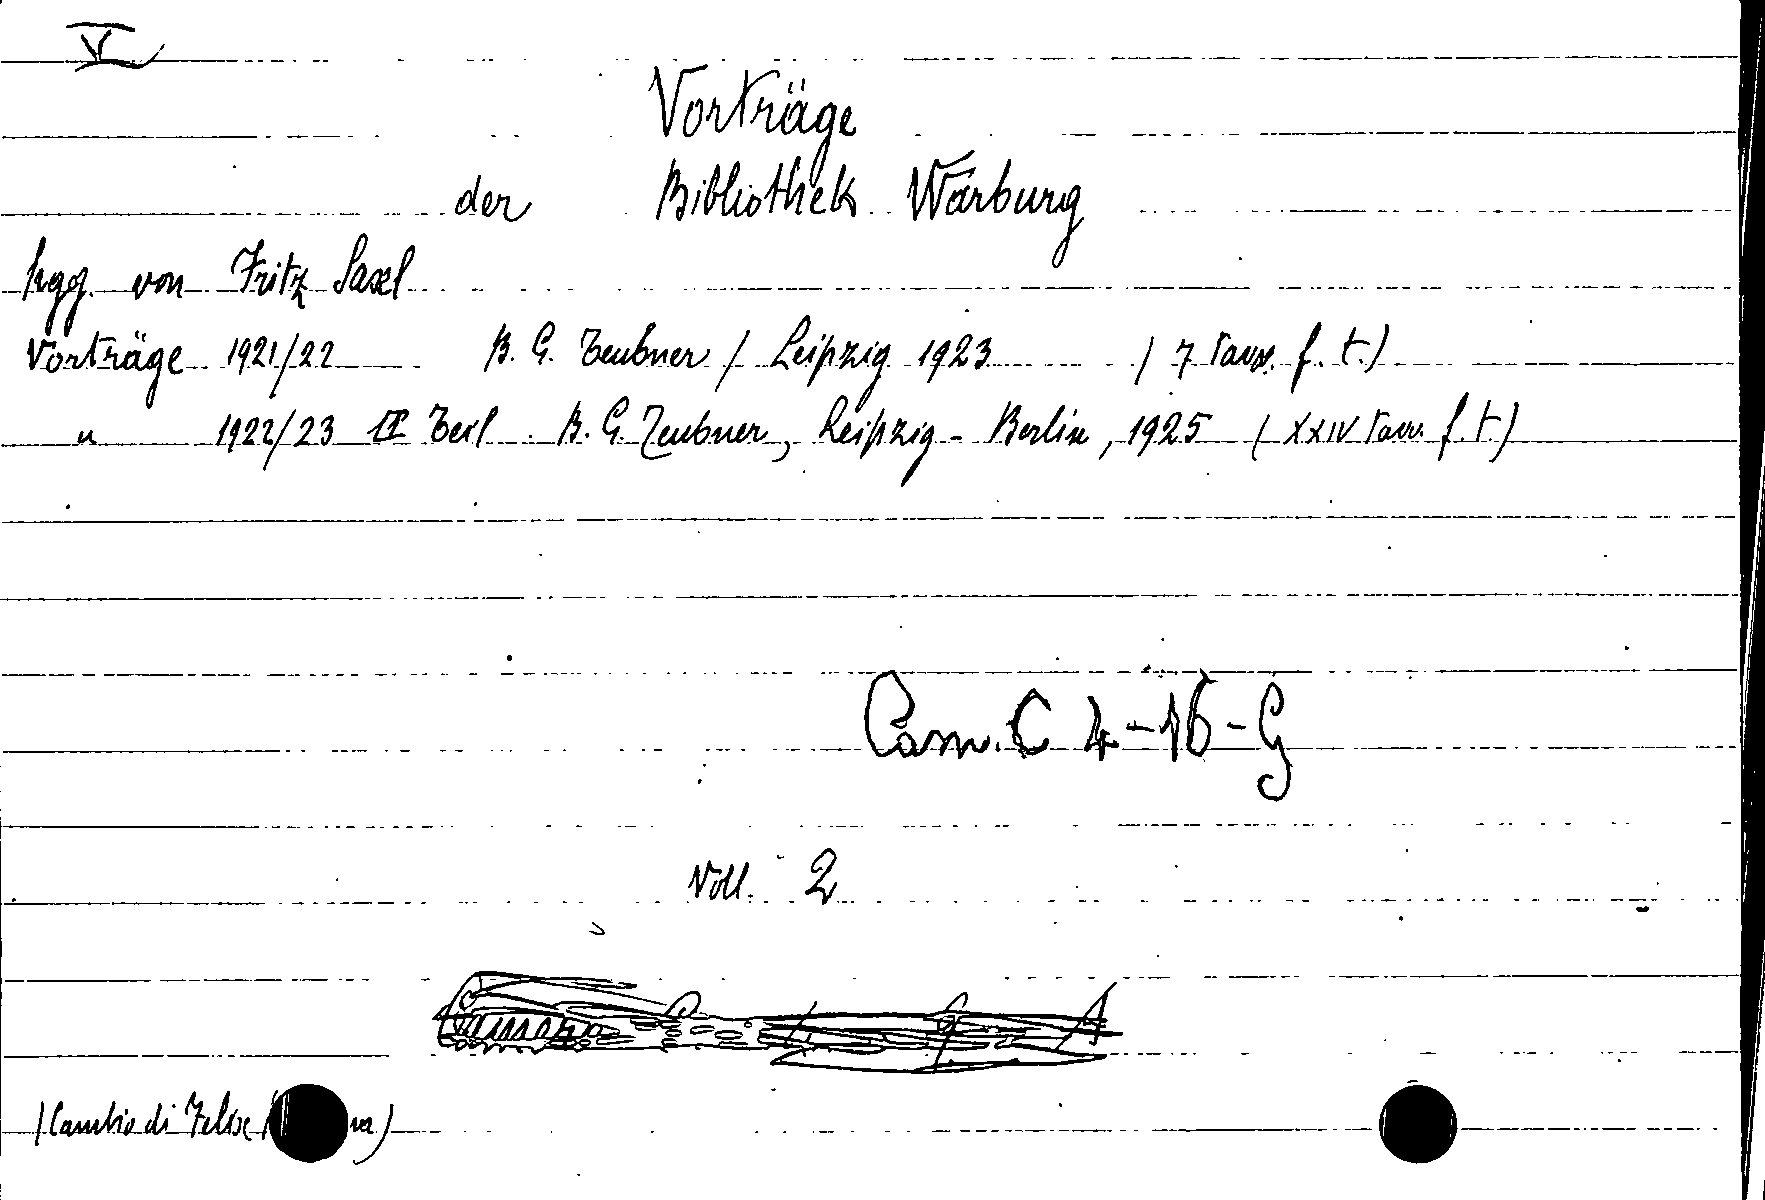 V
Vorträge
der Bibliothek Warburg
hgg. von Fritz Saxl
Vorträge 1921/22 B. G. Teubner / Leipzig 1923 (7 tavv. f. t.)
" 1922/23 II Teil B. G. Teubner, Leipzig - Berlin, 1925 (XXIV tavv. f. t.)
Cam. C 4-16-G
Voll. 2
(Cambio di Felice